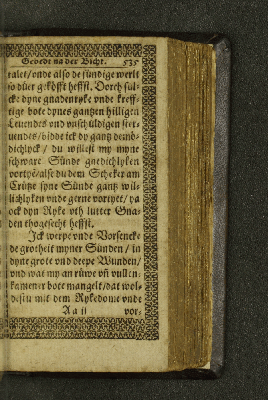 Gebedt na der Bicht. 535
talet/vnde also de sündige werlt
so düer geköfft heffst. Dorch sül-
cke dyne gnadenryke vnde kreff-
tige bote dynes gantzen hilligen
Leuendes vnd vnschüldigen ster-
uendes/bidde ick dy gantz demö-
dichlyck/ du willest my myne
schware Sünde gnedichlyken
vortyē/alse du dem Scheker am
Crütze syne Sünde gantz wil-
lichlyken vnde gerne vortyet/ va
ock dyn Ryke vth lutter Gna-
den thogesecht heffst.
Ick werpe vnde Vorsencke
de grotheit myner Sünden/ in
dyne grote vnd deepe Wunden/
vnd wat my an rüwe vn̄ vullen-
kamener bote mangelt/dat wol-
destu mit dem Rykedome vnde
Aa ii vor-